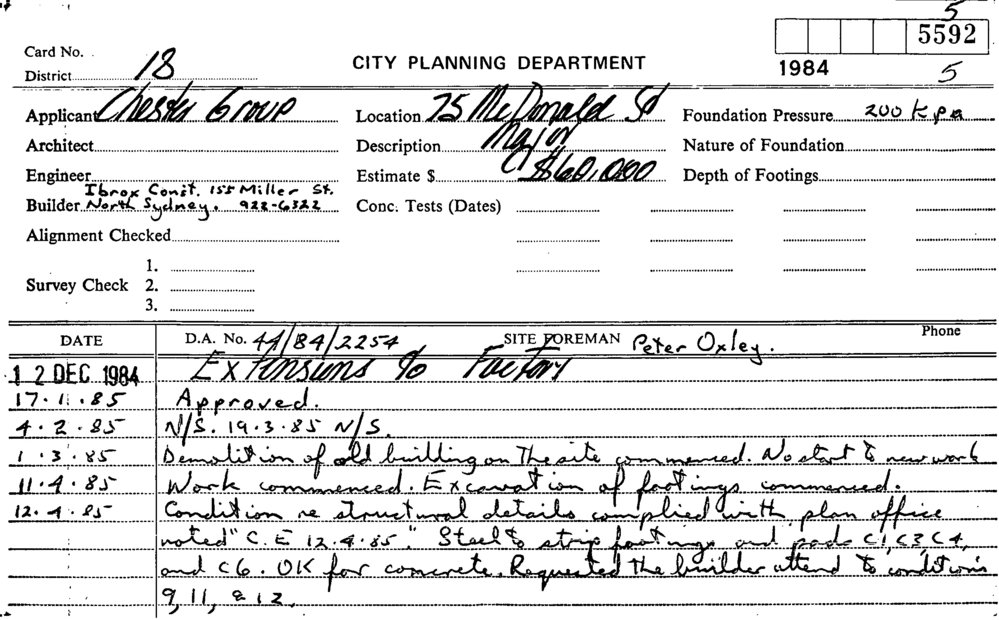 5
5592
1984
5
Card No.
District 18
CITY PLANNING DEPARTMENT
Applicant Chester Group
Location 75 McDonald St
Foundation Pressure 200 Kpa
Architect
Description Major
Nature of Foundation
Engineer
Estimate $ $60,000
Depth of Footings
Ibrox Const. 155 Miller St.
Builder North Sydney. 922-6322
Conc. Tests (Dates)
Alignment Checked
1.
Survey Check 2.
3.
DATE D.A. No. 44/84/2254 SITE FOREMAN Peter Oxley. Phone
12 DEC 1984 Extensions to Factory
17.1.85 Approved.
4.2.85 N/S. 19.3.85 N/S.
1.3.85 Demolition of old building on the site commenced. No start to new work
11.4.85 Work commenced. Excavation of footings commenced.
12.4.85 Condition re structural details complied with plan office
noted "C.E 12.4.85". Steel to strip footings and pads C1, C3, C4,
and C6. OK for concrete. Requested the builder attend to conditions
9, 11, & 12.